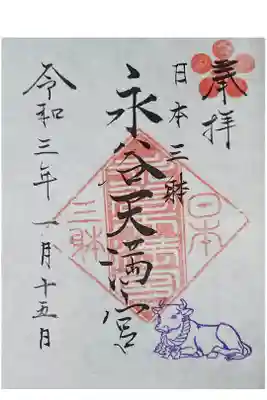 奉拝
日本三躰
永谷天満宮
令和三年一月十五日
日本
三躰